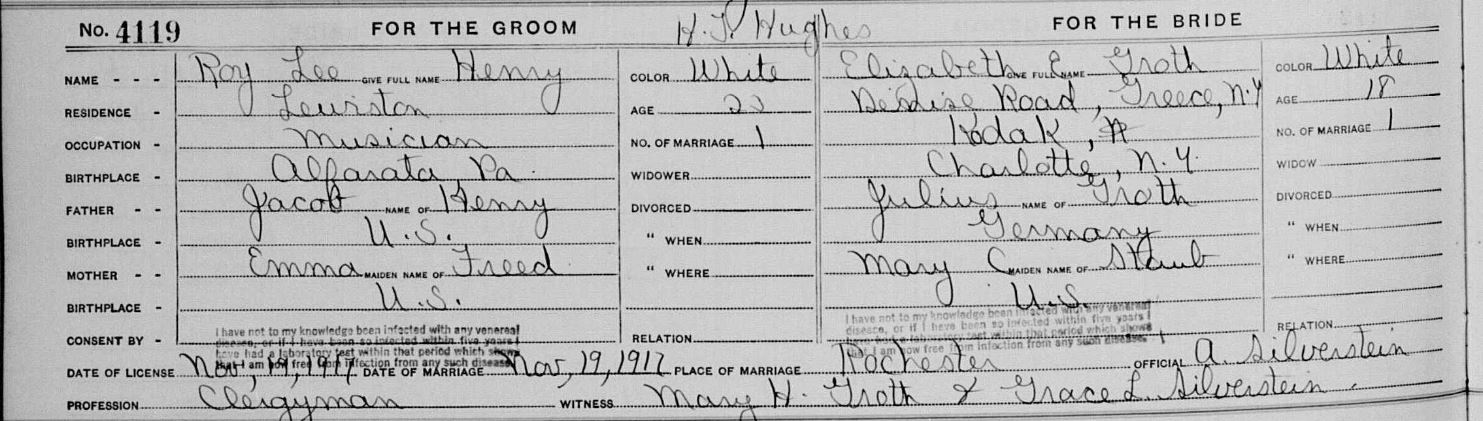 No. 4119 FOR THE GROOM H. T. Hughes FOR THE BRIDE
NAME - - - Roy Lee GIVE FULL NAME Henry COLOR White Elizabeth E. GIVE FULL NAME Groth COLOR White
RESIDENCE - Lewiston AGE 22 Road, Greece, N.Y AGE 18
OCCUPATION - Musician NO. OF MARRIAGE 1 Kodak, NO. OF MARRIAGE 1
BIRTHPLACE - Alfarata, Pa. WIDOWER Charlotte, N.Y. WIDOW
FATHER - - Jacob NAME OF Henry DIVORCED Julius NAME OF Groth DIVORCED
BIRTHPLACE - U.S. " WHEN Germany " WHEN
MOTHER - - Emma MAIDEN NAME OF Freed " WHERE Mary C MAIDEN NAME OF Staub " WHERE
BIRTHPLACE - U.S. U.S.
I have not to my knowledge been infected with any venereal
disease, or if I have been so infected within five years I
have had a laboratory test within that period which shows
that I am now free from infection from any such disease
I have not to my knowledge been infected with any venereal
disease, or if I have been so infected within five years I
have had a laboratory test within that period which shows
that I am now free from infection from any such disease
CONSENT BY - RELATION RELATION
DATE OF LICENSE Nov, 19, 1917 DATE OF MARRIAGE Nov, 19, 1917 PLACE OF MARRIAGE Rochester OFFICIAL A. Silverstein
PROFESSION Clergyman WITNESS Mary H. Groth & Grace L. Silverstein